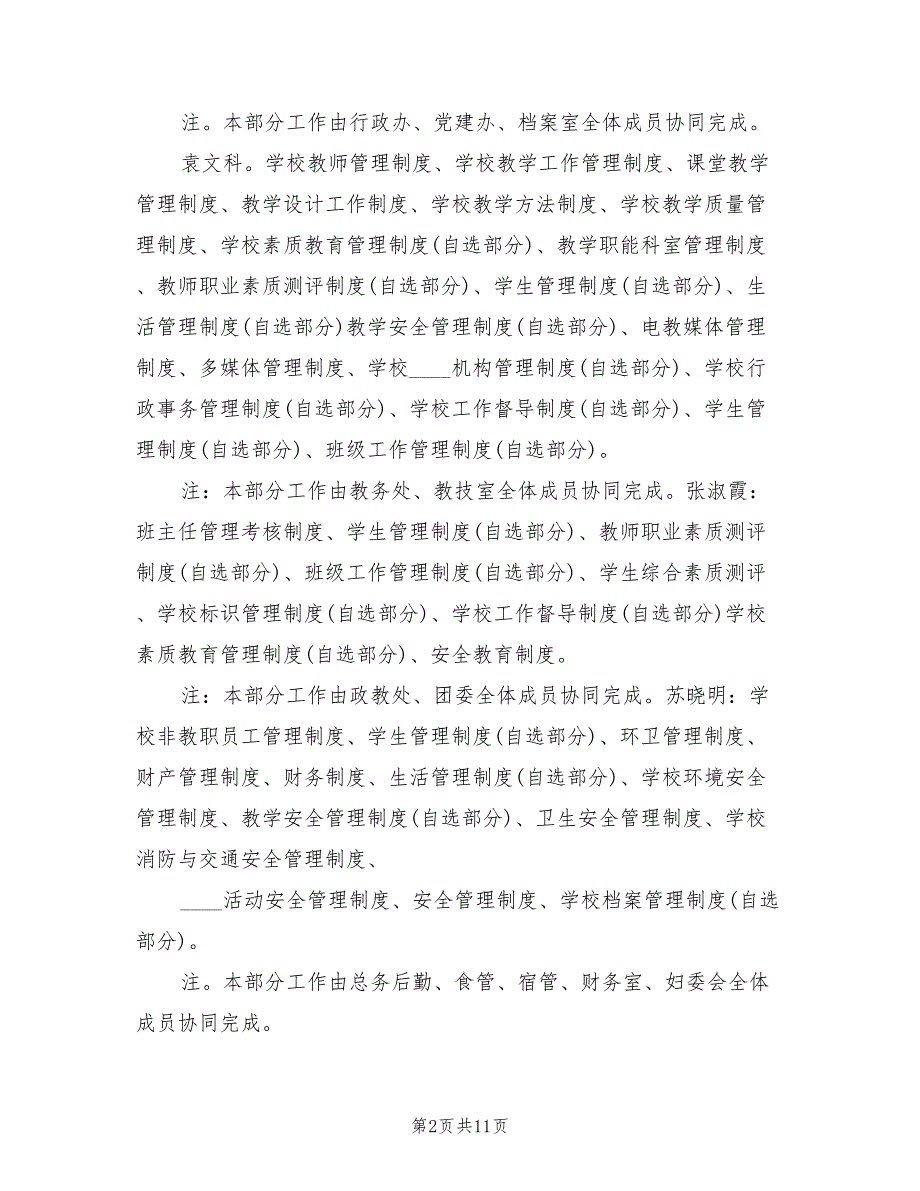 注。本部分工作由行政办、党建办、档案室全体成员协同完成。
袁文科。学校教师管理制度、学校教学工作管理制度、课堂教学
管理制度、教学设计工作制度、学校教学方法制度、学校教学质量管
理制度、学校素质教育管理制度(自选部分)、教学职能科室管理制度
、教师职业素质测评制度(自选部分)、学生管理制度(自选部分)、生
活管理制度(自选部分)教学安全管理制度(自选部分)、电教媒体管理
制度、多媒体管理制度、学校____机构管理制度(自选部分)、学校行
政事务管理制度(自选部分)、学校工作督导制度(自选部分)、学生管
理制度(自选部分)、班级工作管理制度(自选部分)。
注：本部分工作由教务处、教技室全体成员协同完成。张淑霞：
班主任管理考核制度、学生管理制度(自选部分)、教师职业素质测评
制度(自选部分)、班级工作管理制度(自选部分)、学生综合素质测评
、学校标识管理制度(自选部分)、学校工作督导制度(自选部分)学校
素质教育管理制度(自选部分)、安全教育制度。
注：本部分工作由政教处、团委全体成员协同完成。苏晓明：学
校非教职员工管理制度、学生管理制度(自选部分)、环卫管理制度、
财产管理制度、财务制度、生活管理制度(自选部分)、学校环境安全
管理制度、教学安全管理制度(自选部分)、卫生安全管理制度、学校
消防与交通安全管理制度、
____活动安全管理制度、安全管理制度、学校档案管理制度(自选
部分)。
注。本部分工作由总务后勤、食管、宿管、财务室、妇委会全体
成员协同完成。
第2页共11页